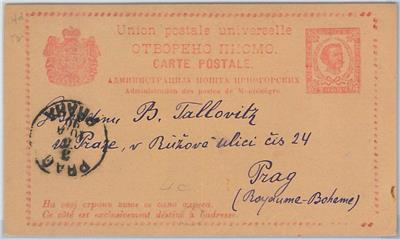 Union postale universelle
ОТВОРЕНО ПИСМО.
CARTE POSTALE.
АДМИНИСТРАЦИЈА ПОШТА ЦРНОГОРСКИХ
Administration des postes de Monténégro.
B. Tallovitz
v Praze, v Růžové ulici čis 24
Prag
(Royaume-Boheme)
PRAG
PRAHA
На овој страни пише се само адреса.
Ce côté est exclusivement destiné à l'adresse.